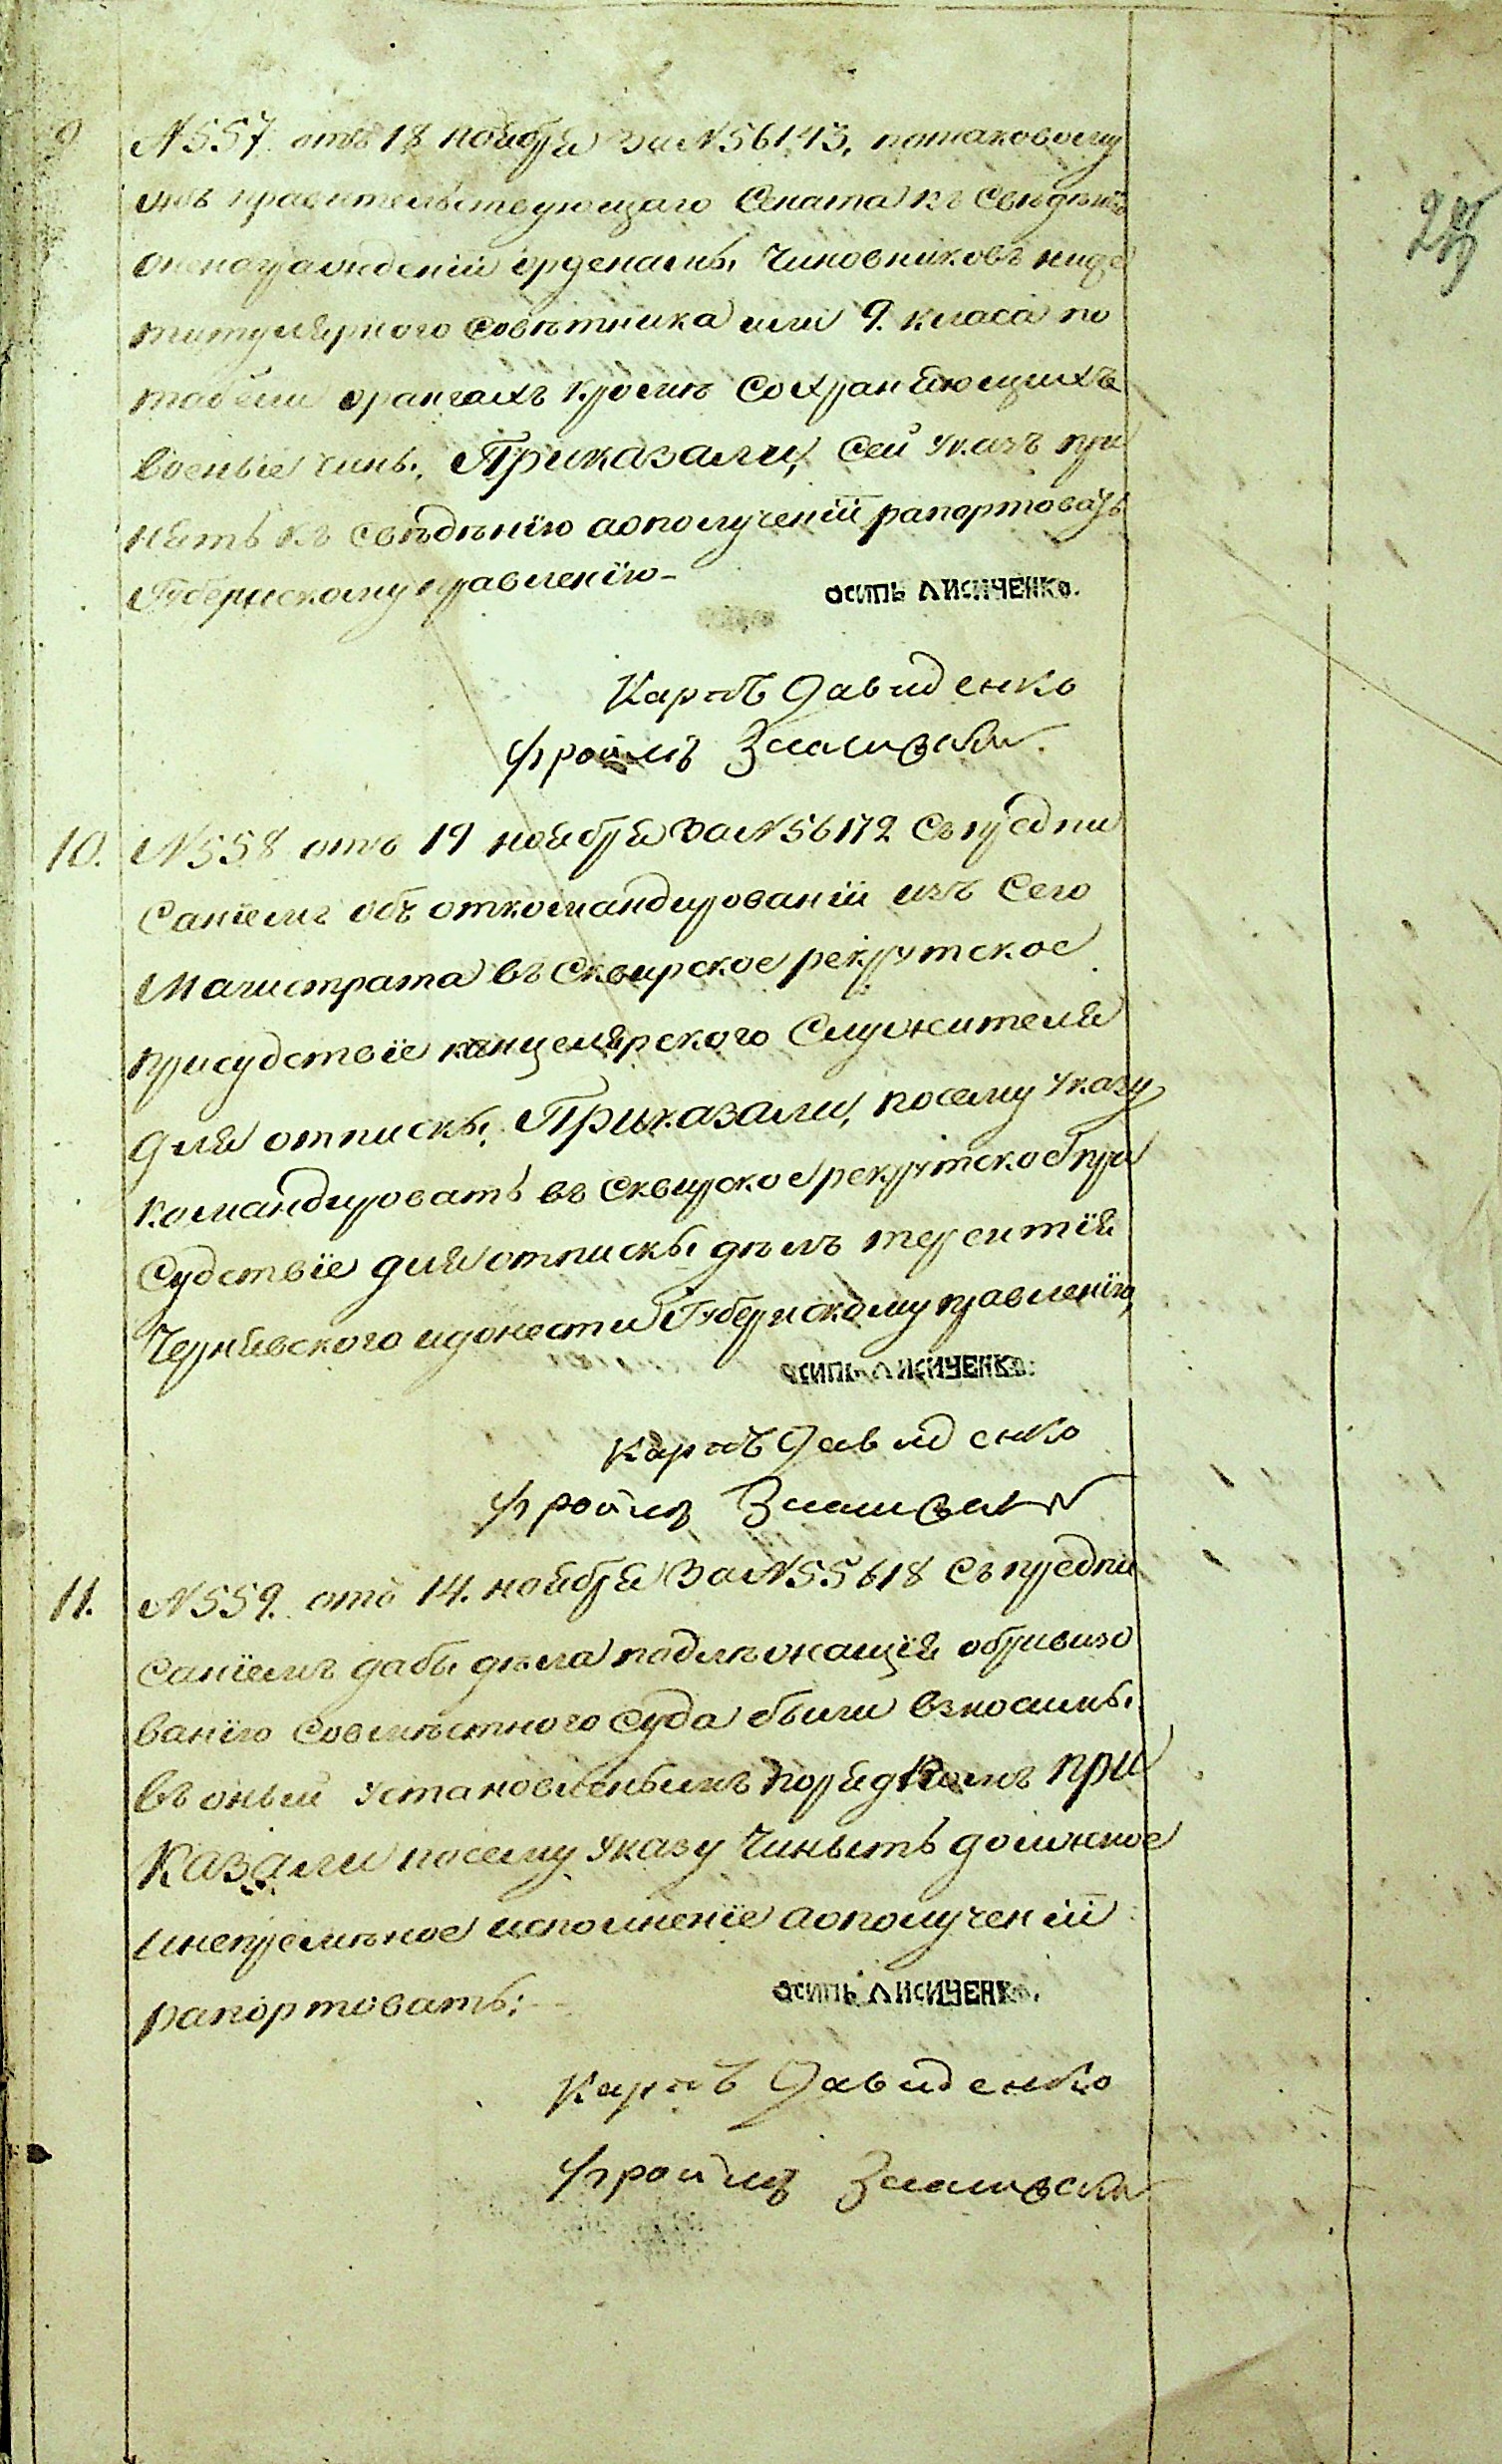 9 N 557. отъ 18 ноября за N 56143, потаковому
изъ правительствующаго Сената къ сведению
оненагражденіи орденамы чиновниковъ ниже
титулярного советника или 9. класа по
табели орангахъ кроме сохраняющихъ
военые чины, Приказали, сей указъ при
нять къ сведенію аополученіи рапортовать
Губернскому правленію-
ОСИПЪ ЛИСИЧЕНКО.
Карпъ Давиденко
Фроимъ
10. N 558 отъ 19 ноября за N 56172 съ предпи
саніемъ объ откомандированіи изъ сего
Магистрата въ Сквирское рекрутское
присудствіе канцелярского служителя
для отпискы, Приказали, посему указу
командировать въ Сквирское рекрутское при
судствіе для отпискы делъ терентія
Чернявского идонести Губернскому правленію,
ОСИПЪ ЛИСИЧЕНКО.
Карпъ Давиденко
Фроимъ
11. N 559. отъ 14. ноября за N 55618 съ предпи
саніемъ дабы дела подлежащія обривизо
ванію совместного суда были взносимы
въ оный установленымъ порядкомъ при
казали посему указу чиныть должное
инепременое исполненіе аополученіи
рапортовать;--
ОСИПЪ ЛИСИЧЕНКО.
Карпъ Давиденко
Фроимъ